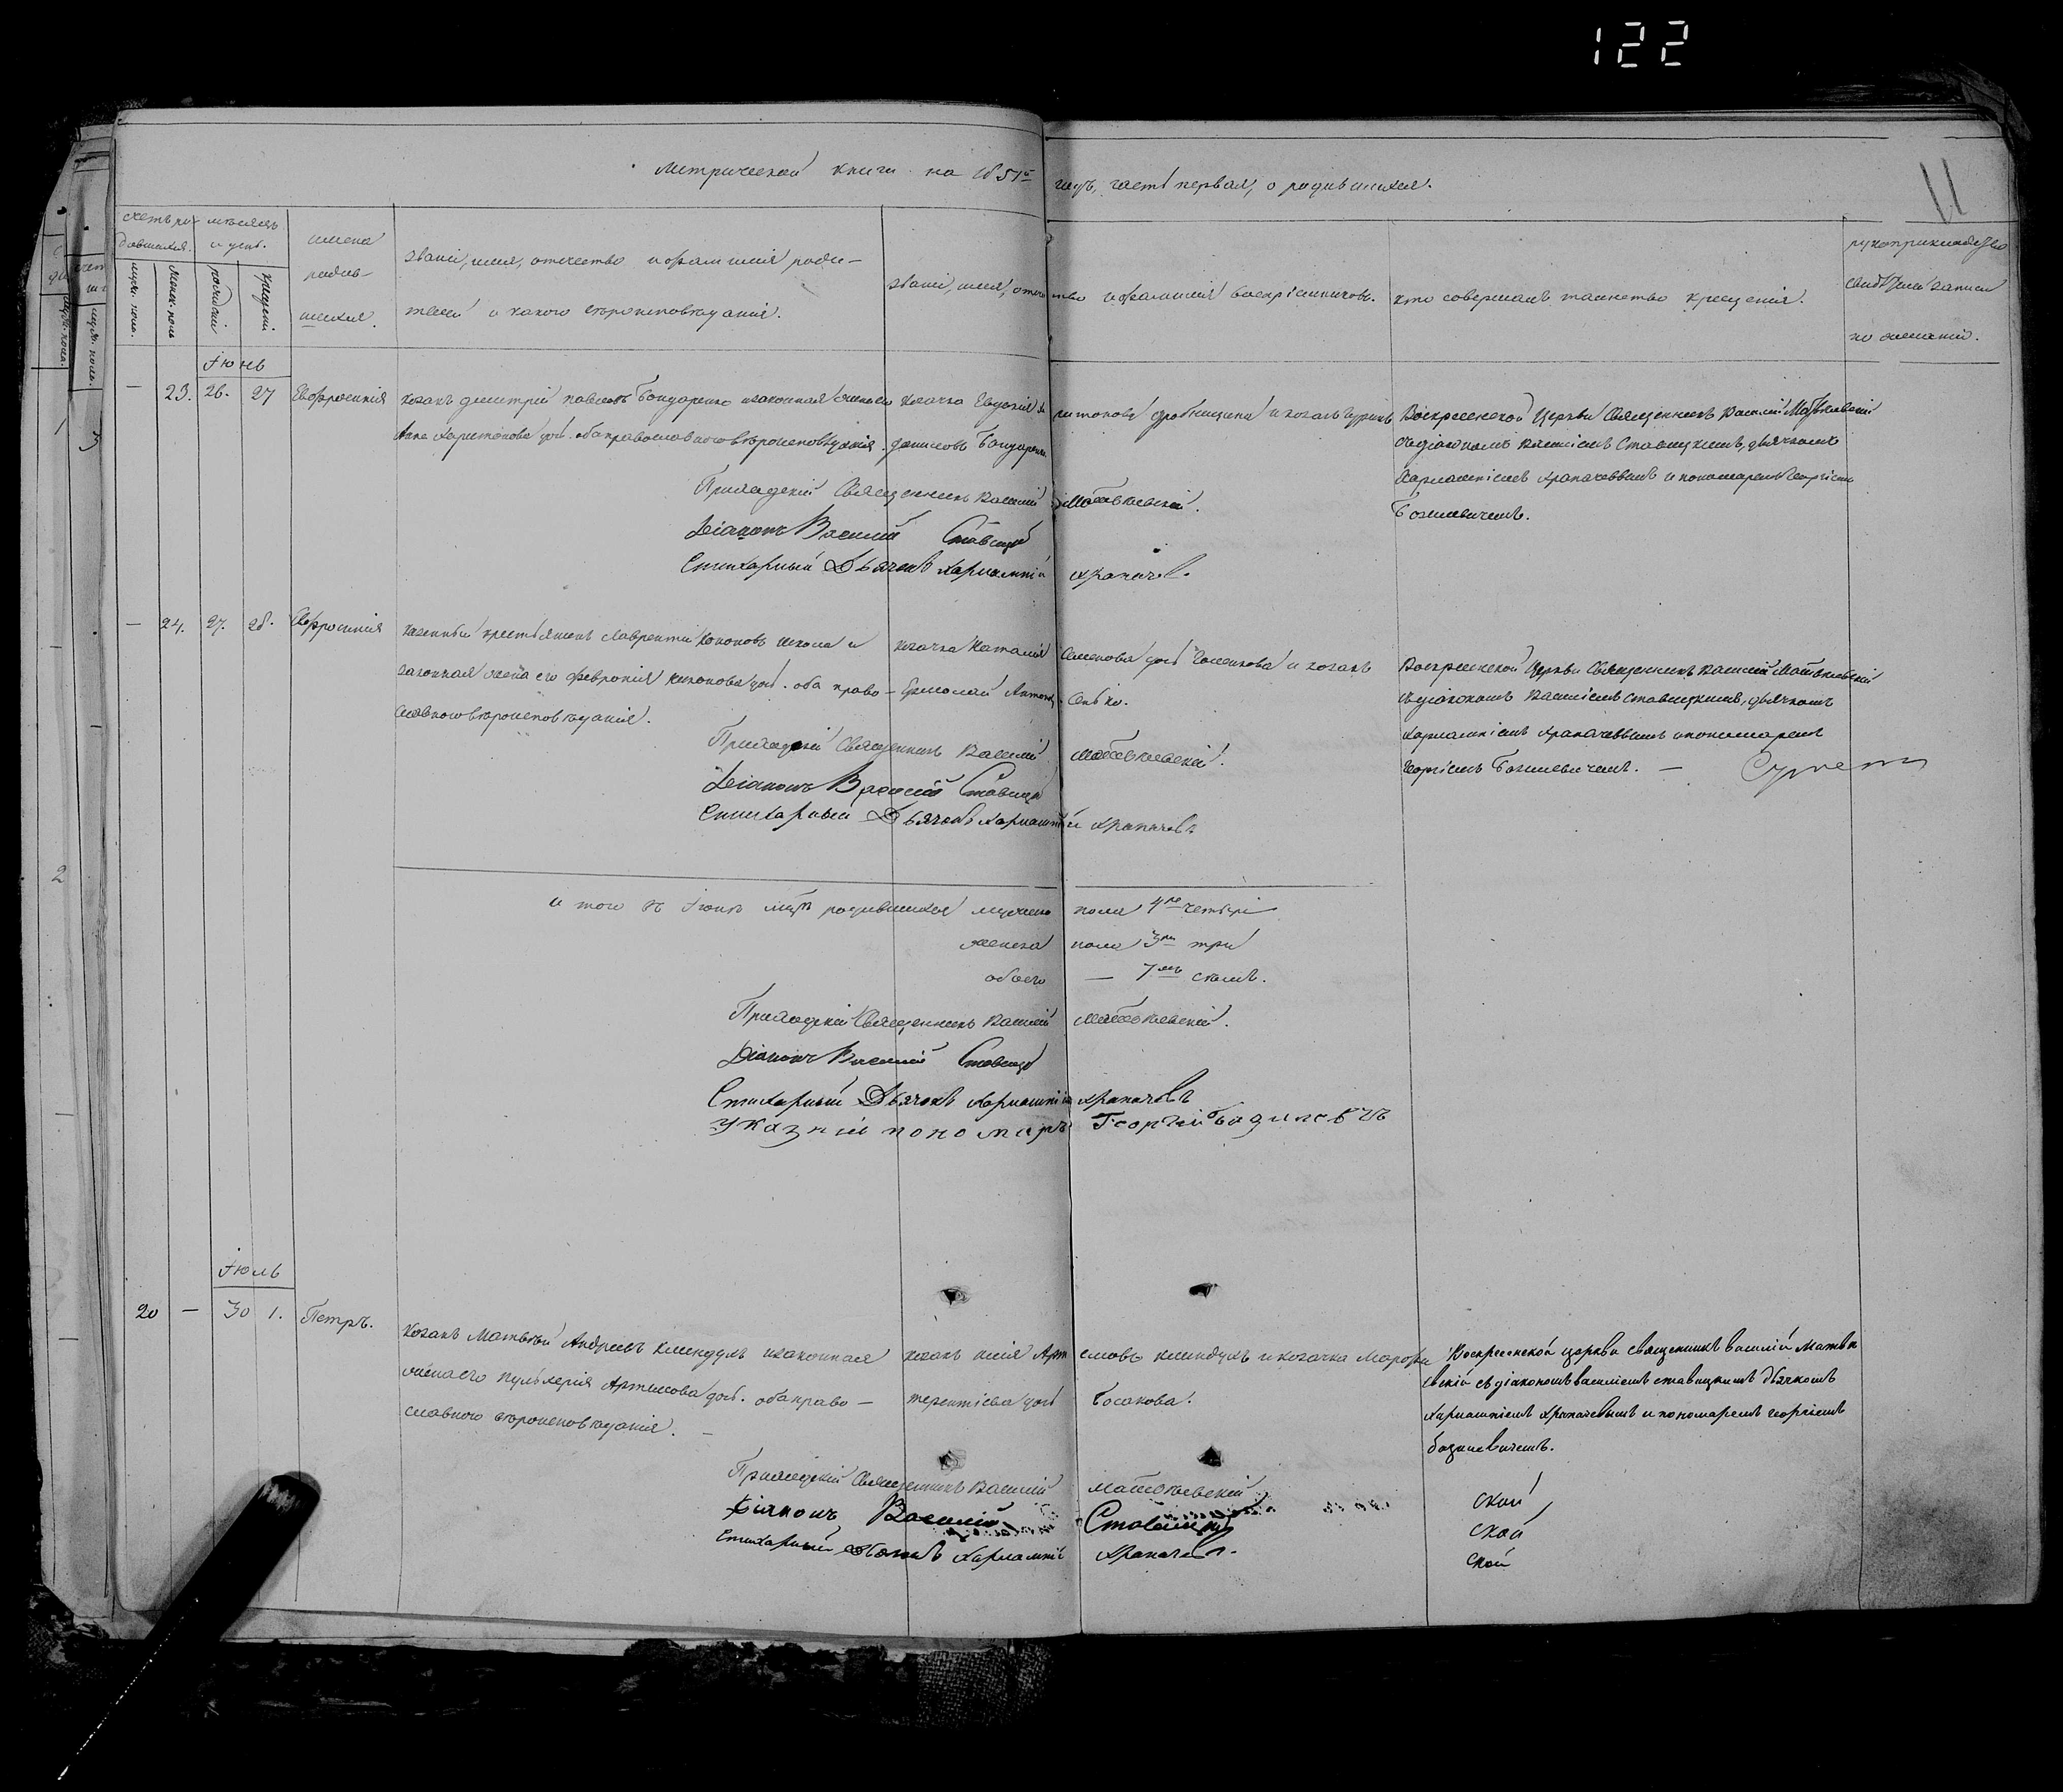 122
11
Метрической книги на 1851й годъ, часть первая, о родившихся.
счетъ ро- мѣсяцъ
дившихся. и день.
муж. полъ. женск. полъ рожденій крещеній
имена
родив-
шихся.
званіе, имя, отечество и фамилія роди-
телей и какого вѣроисповѣданія.
званіе, имя, отечество и фамилія воспріемниковъ.
кто совершалъ таинство крещенія.
рукоприкладство
свидѣтелей записи
по желанію.
Іюнь
— 23. 26. 27 Евфросинія
козакъ димитрій павловъ Бондаренко и законная жена его
Анна Харитонова доч. оба православного вѣроисповѣданія.
козачка Евдокія Харитонова и козакъ
даниловъ Бондаренко
Воскресенской Церкви Священникъ Василій Матвѣевскій
съ діакономъ Василіемъ Ставицкимъ, дьячкомъ
Харлампіемъ Храпачевымъ и пономаремъ Георгіемъ
Базилевичемъ.
Приходскій Священникъ Василій Матвѣевскій.
Діаконъ Василій Ставицкій
Стихарный Дьячокъ Харлампій Храпачевъ.
— 24. 27. 28. Евфросинія
казенный крестьянинъ Лаврентій Кононовъ и
законная жена его Феврония доч. оба право-
славного вѣроисповѣданія.
козачка Наталія Семенова доч. и козакъ
Ермолай Сенько.
Воскресенской Церкви Священникъ Василій Матвѣевскій
съ діакономъ Василіемъ Ставицкимъ, дьячкомъ
Харлампіемъ Храпачевымъ и пономаремъ
Георгіемъ Базилевичемъ. —
Приходскій Священникъ Василій Матвѣевскій.
Діаконъ Василій Ставицкій
Стихарный Дьячокъ Харлампій Храпачевъ
и того въ Іюнѣ мцѣ родившихся мужеска пола 4ре четыре
женска пола 3ри три
обоего — 7мь семь.
Приходскій Священникъ Василій Матвѣевскій.
Діаконъ Василій Ставицкій
Стихарный Дьячокъ Харлампій Храпачевъ
Указній пономарь Георгій Базилевичъ
Іюль
20 — 30 1. Петръ.
козакъ Матвѣй Андреевъ Клиндухъ и законная
жена его пульхерія Артемова доч. оба право-
славного вѣроисповѣданія. —
козакъ илія Артемовъ клиндухъ и козачка Марфа
терентіева доч. Босакова.
Воскресенской церкви священникъ василій матвѣ-
евскій съ діакономъ василіемъ ставицкимъ дьячкомъ
Харлампіемъ Храпачевымъ и пономаремъ георгіемъ
базилевичемъ.
Приходскій Священникъ Василій Матвѣевскій
Діаконъ Василій Ставицкій
Стихарный Дьячокъ Харлампій Храпачевъ.
ской
ской
ской